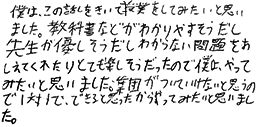 僕は、この話しをきいて授業をしてみたいと思い
ました。教科書などがわかりやすそうだし
先生が優しそうだしわからない問題をお
しえてくれたりとても楽しそうだったので僕は、やって
みたいと思いました。集団がついていけないと思うの
で1対1で、できると思ったからやってみたいと思いまし
た。